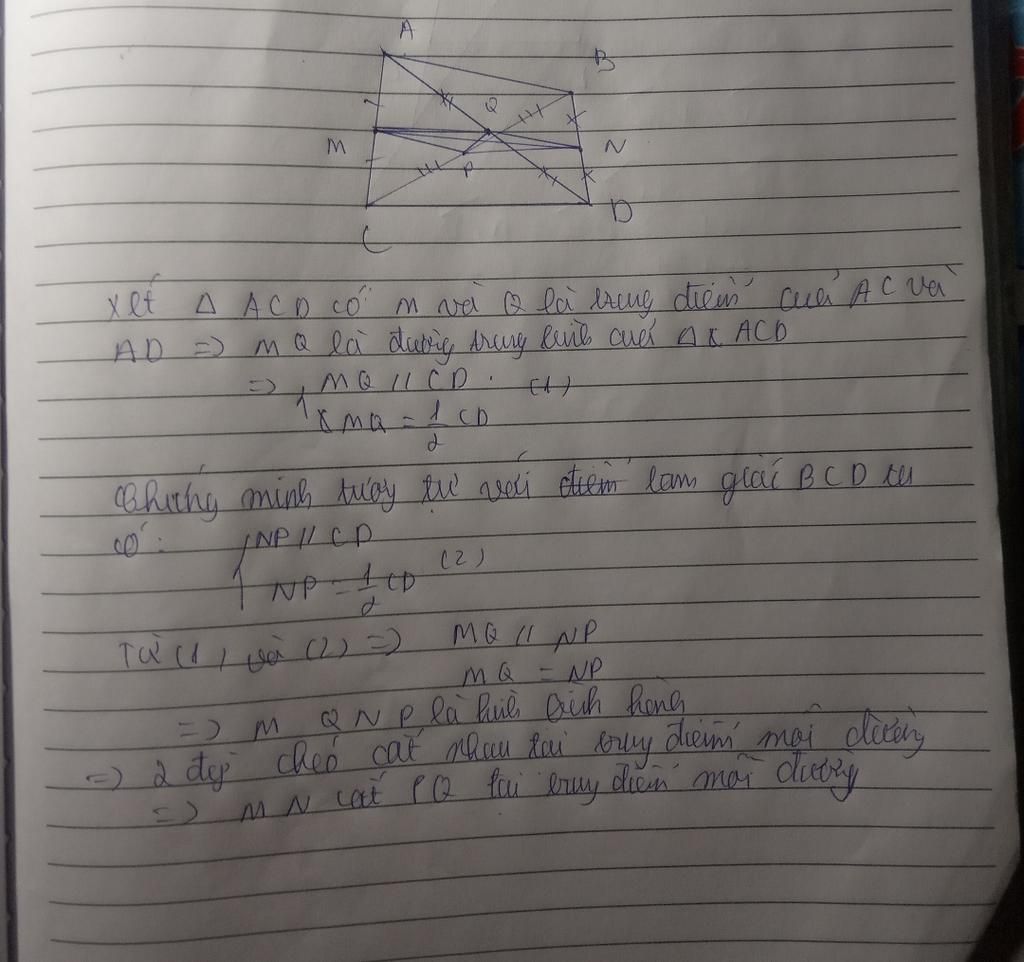 A
B
Q
M
N
P
C
D
Xét Δ ACD có M và Q là trung điểm của AC và
AD => MQ là đường trung bình của Δ ACD
=> { MQ // CD (1)
MQ = 1/2 CD
Chứng minh tương tự với tam giác BCD ta
có: { NP // CD
NP = 1/2 CD (2)
Từ (1) và (2) => MQ // NP
MQ = NP
=> M Q N P là hình bình hành
=> 2 đg chéo cắt nhau tại trung điểm mỗi đường
=> MN cắt PQ tại trung điểm mỗi đường